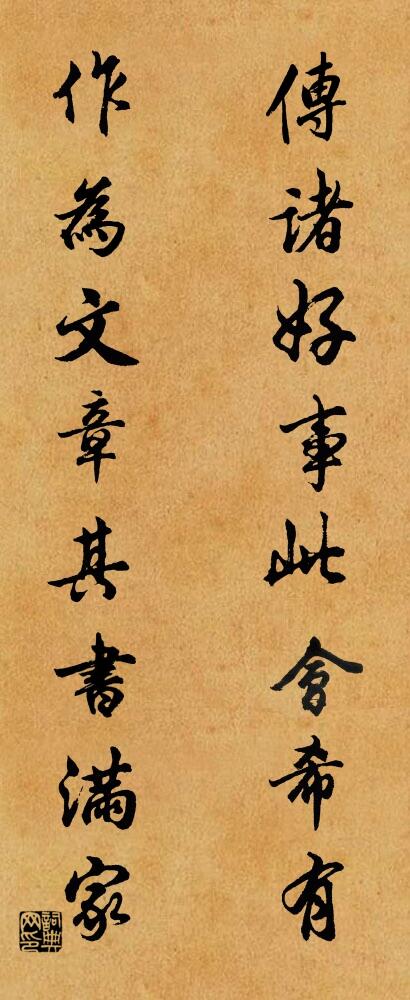 傳諸好事此會希有
作為文章其書滿家
詞典网印